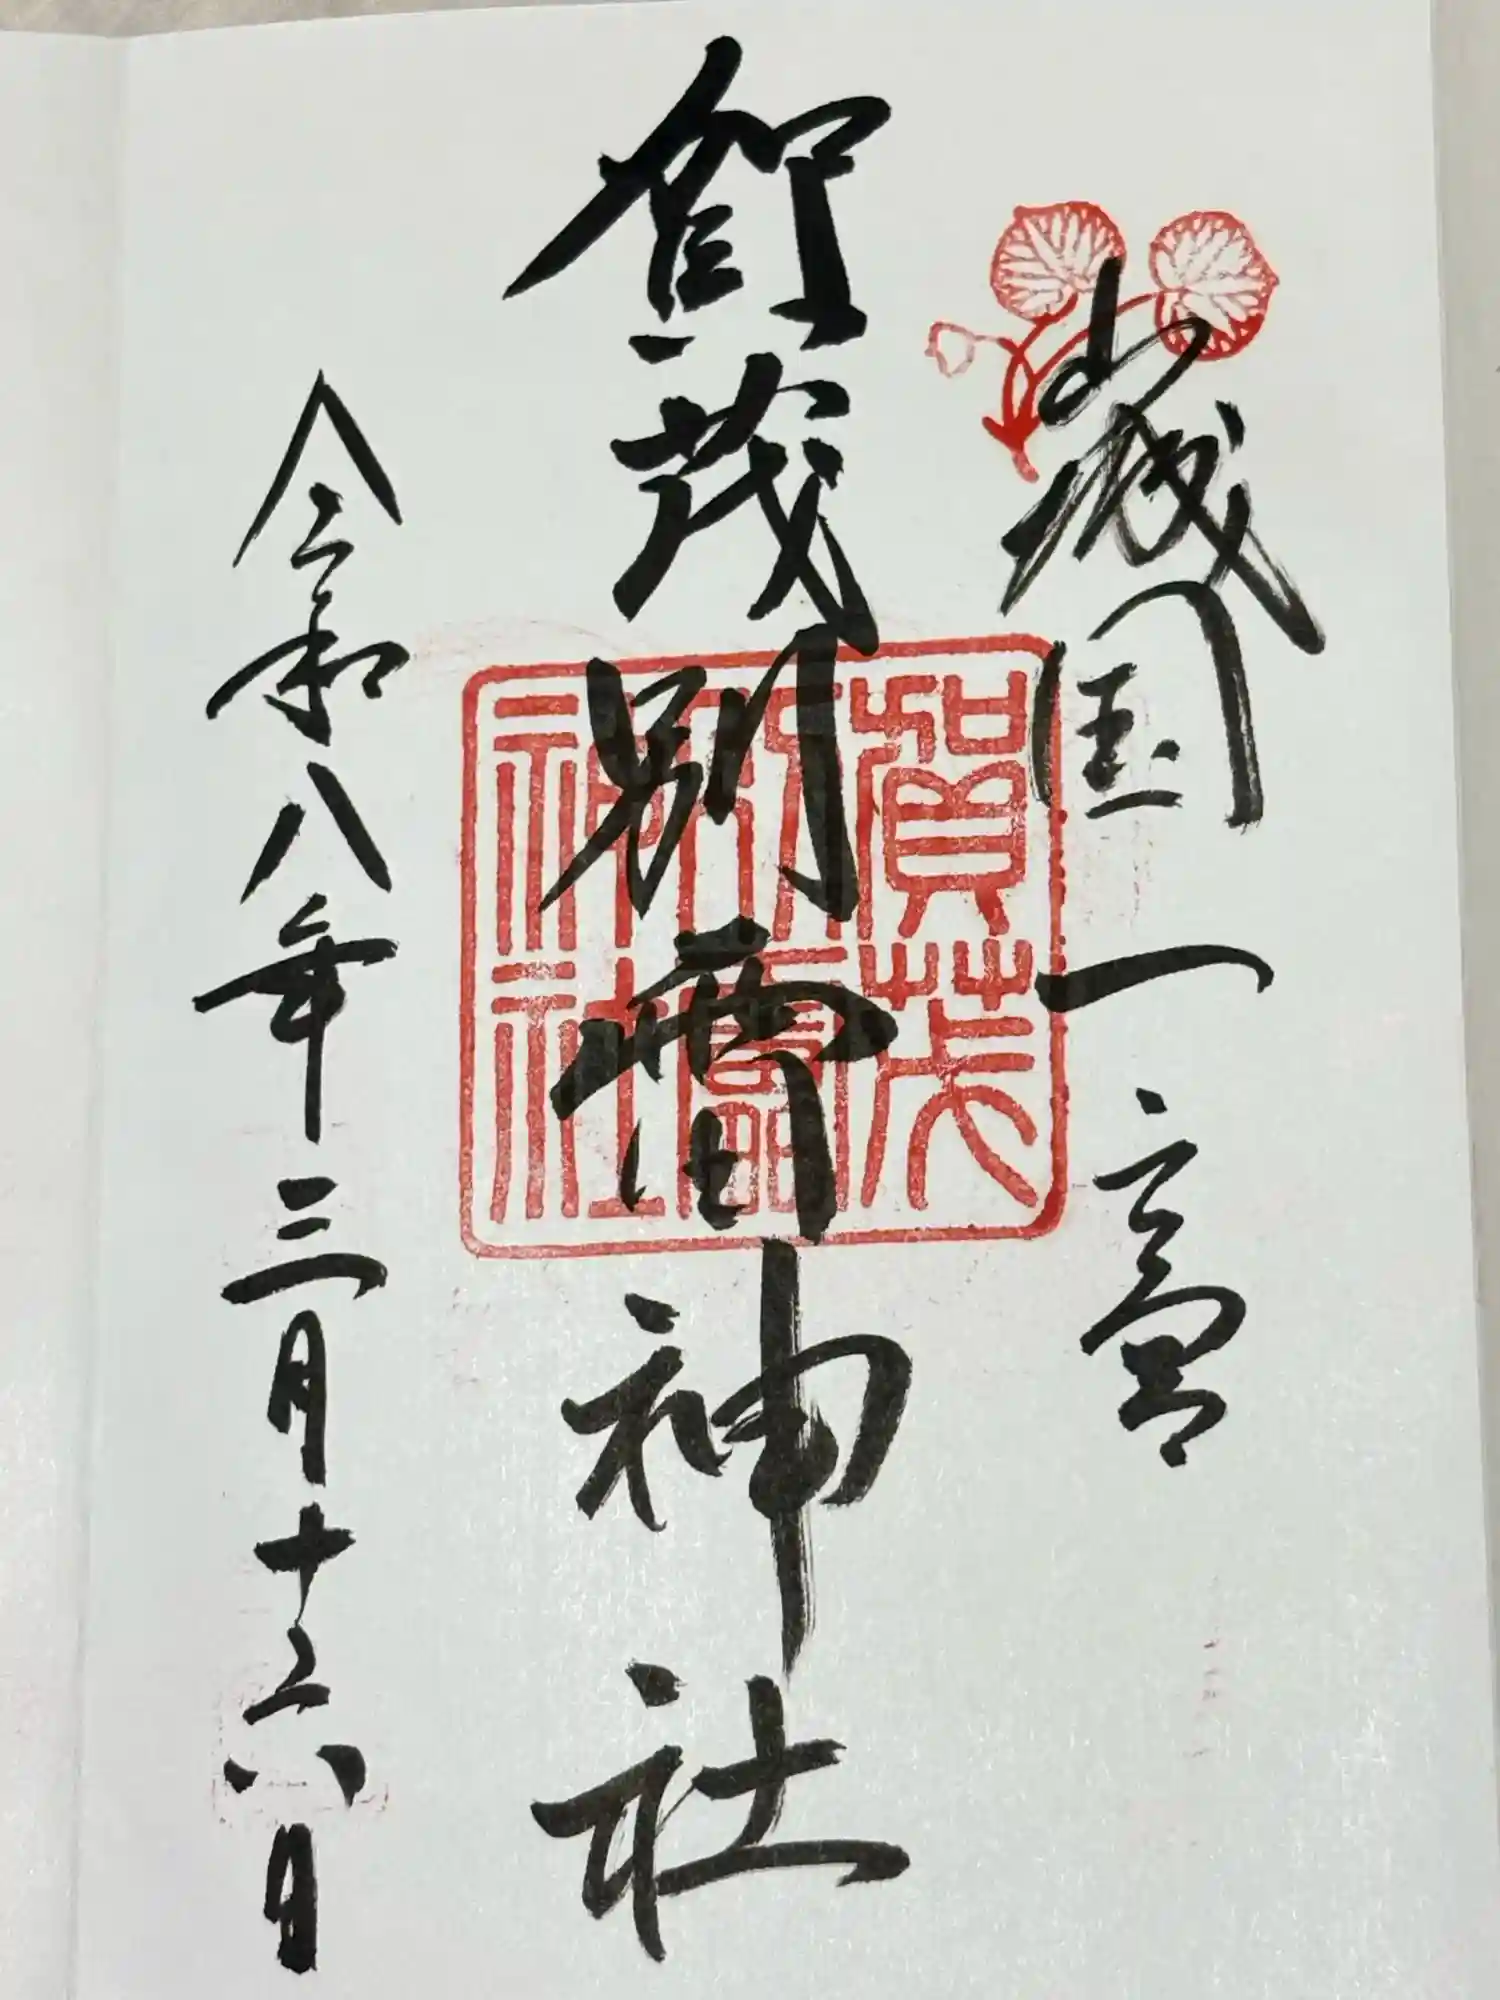 山城国一宮
賀茂別雷神社
賀茂
別雷
神社
令和八年三月十六日